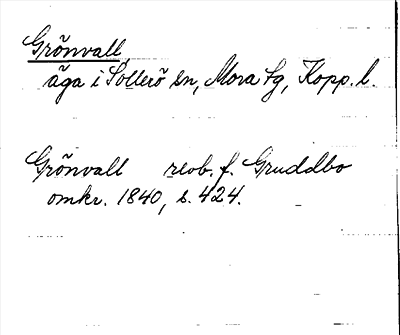 Grönvall,
äga i Sollerö sn, Mora tg, Kopp. l.
Grönvall reob. f. Gruddbo
omkr. 1840, s. 424.